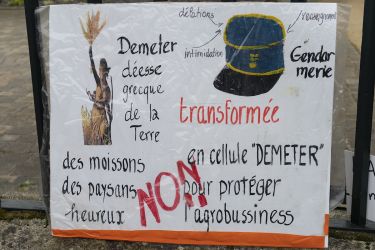 délations
renseignement
intimidation
Demeter
déesse
grecque
de la
Terre
Gendar
merie
transformée
des moissons
des paysans
heureux
NON
en cellule "DEMETER"
pour protéger
l'agrobussiness